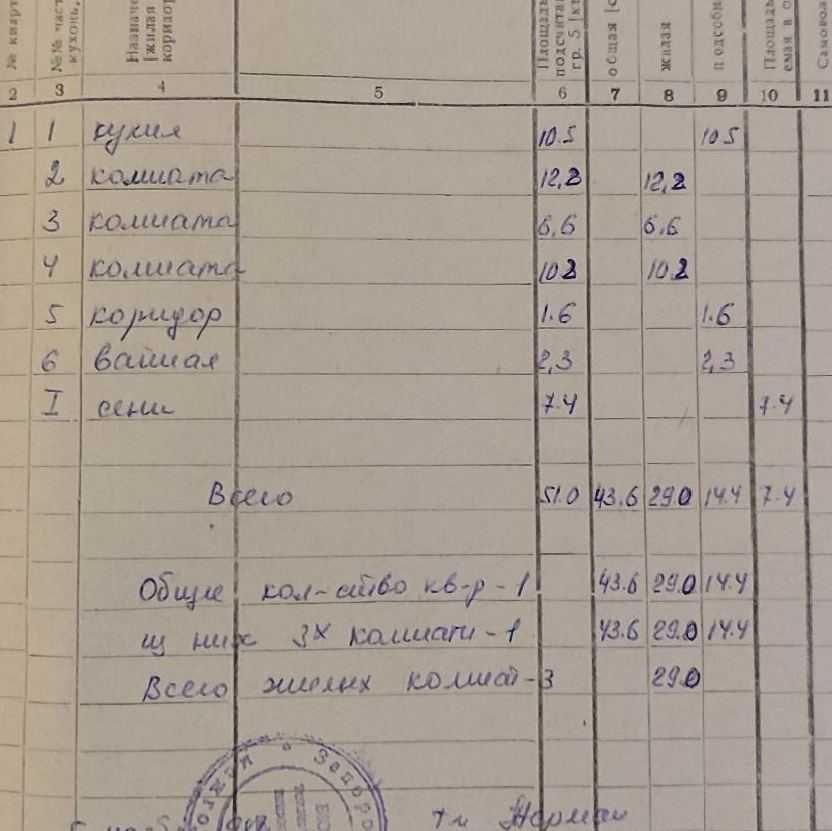 № кварт
№№ част
кухонь,
Назначе
[жилая
коридор
Площадь
подсчитан
гр. 5 [к
общая [с
жилая
подсоби
Площадь
емая в о
Самовол
2 3 4 5 6 7 8 9 10 11
1 1 кухня 10.5 10.5
2 комната 12,2 12,2
3 комната 6,6 6.6
4 комната 10.2 10.2
5 коридор 1.6 1.6
6 ванная 2,3 2,3
I сени 7.4 7.4
Всего 51.0 43.6 29.0 14.4 7.4
Общие кол-ство кв-р - 1 43.6 29.0 14.4
из них 3х комнатн - 1 43.6 29.0 14.4
Всего жилых комнат - 3 29.0
Запоро